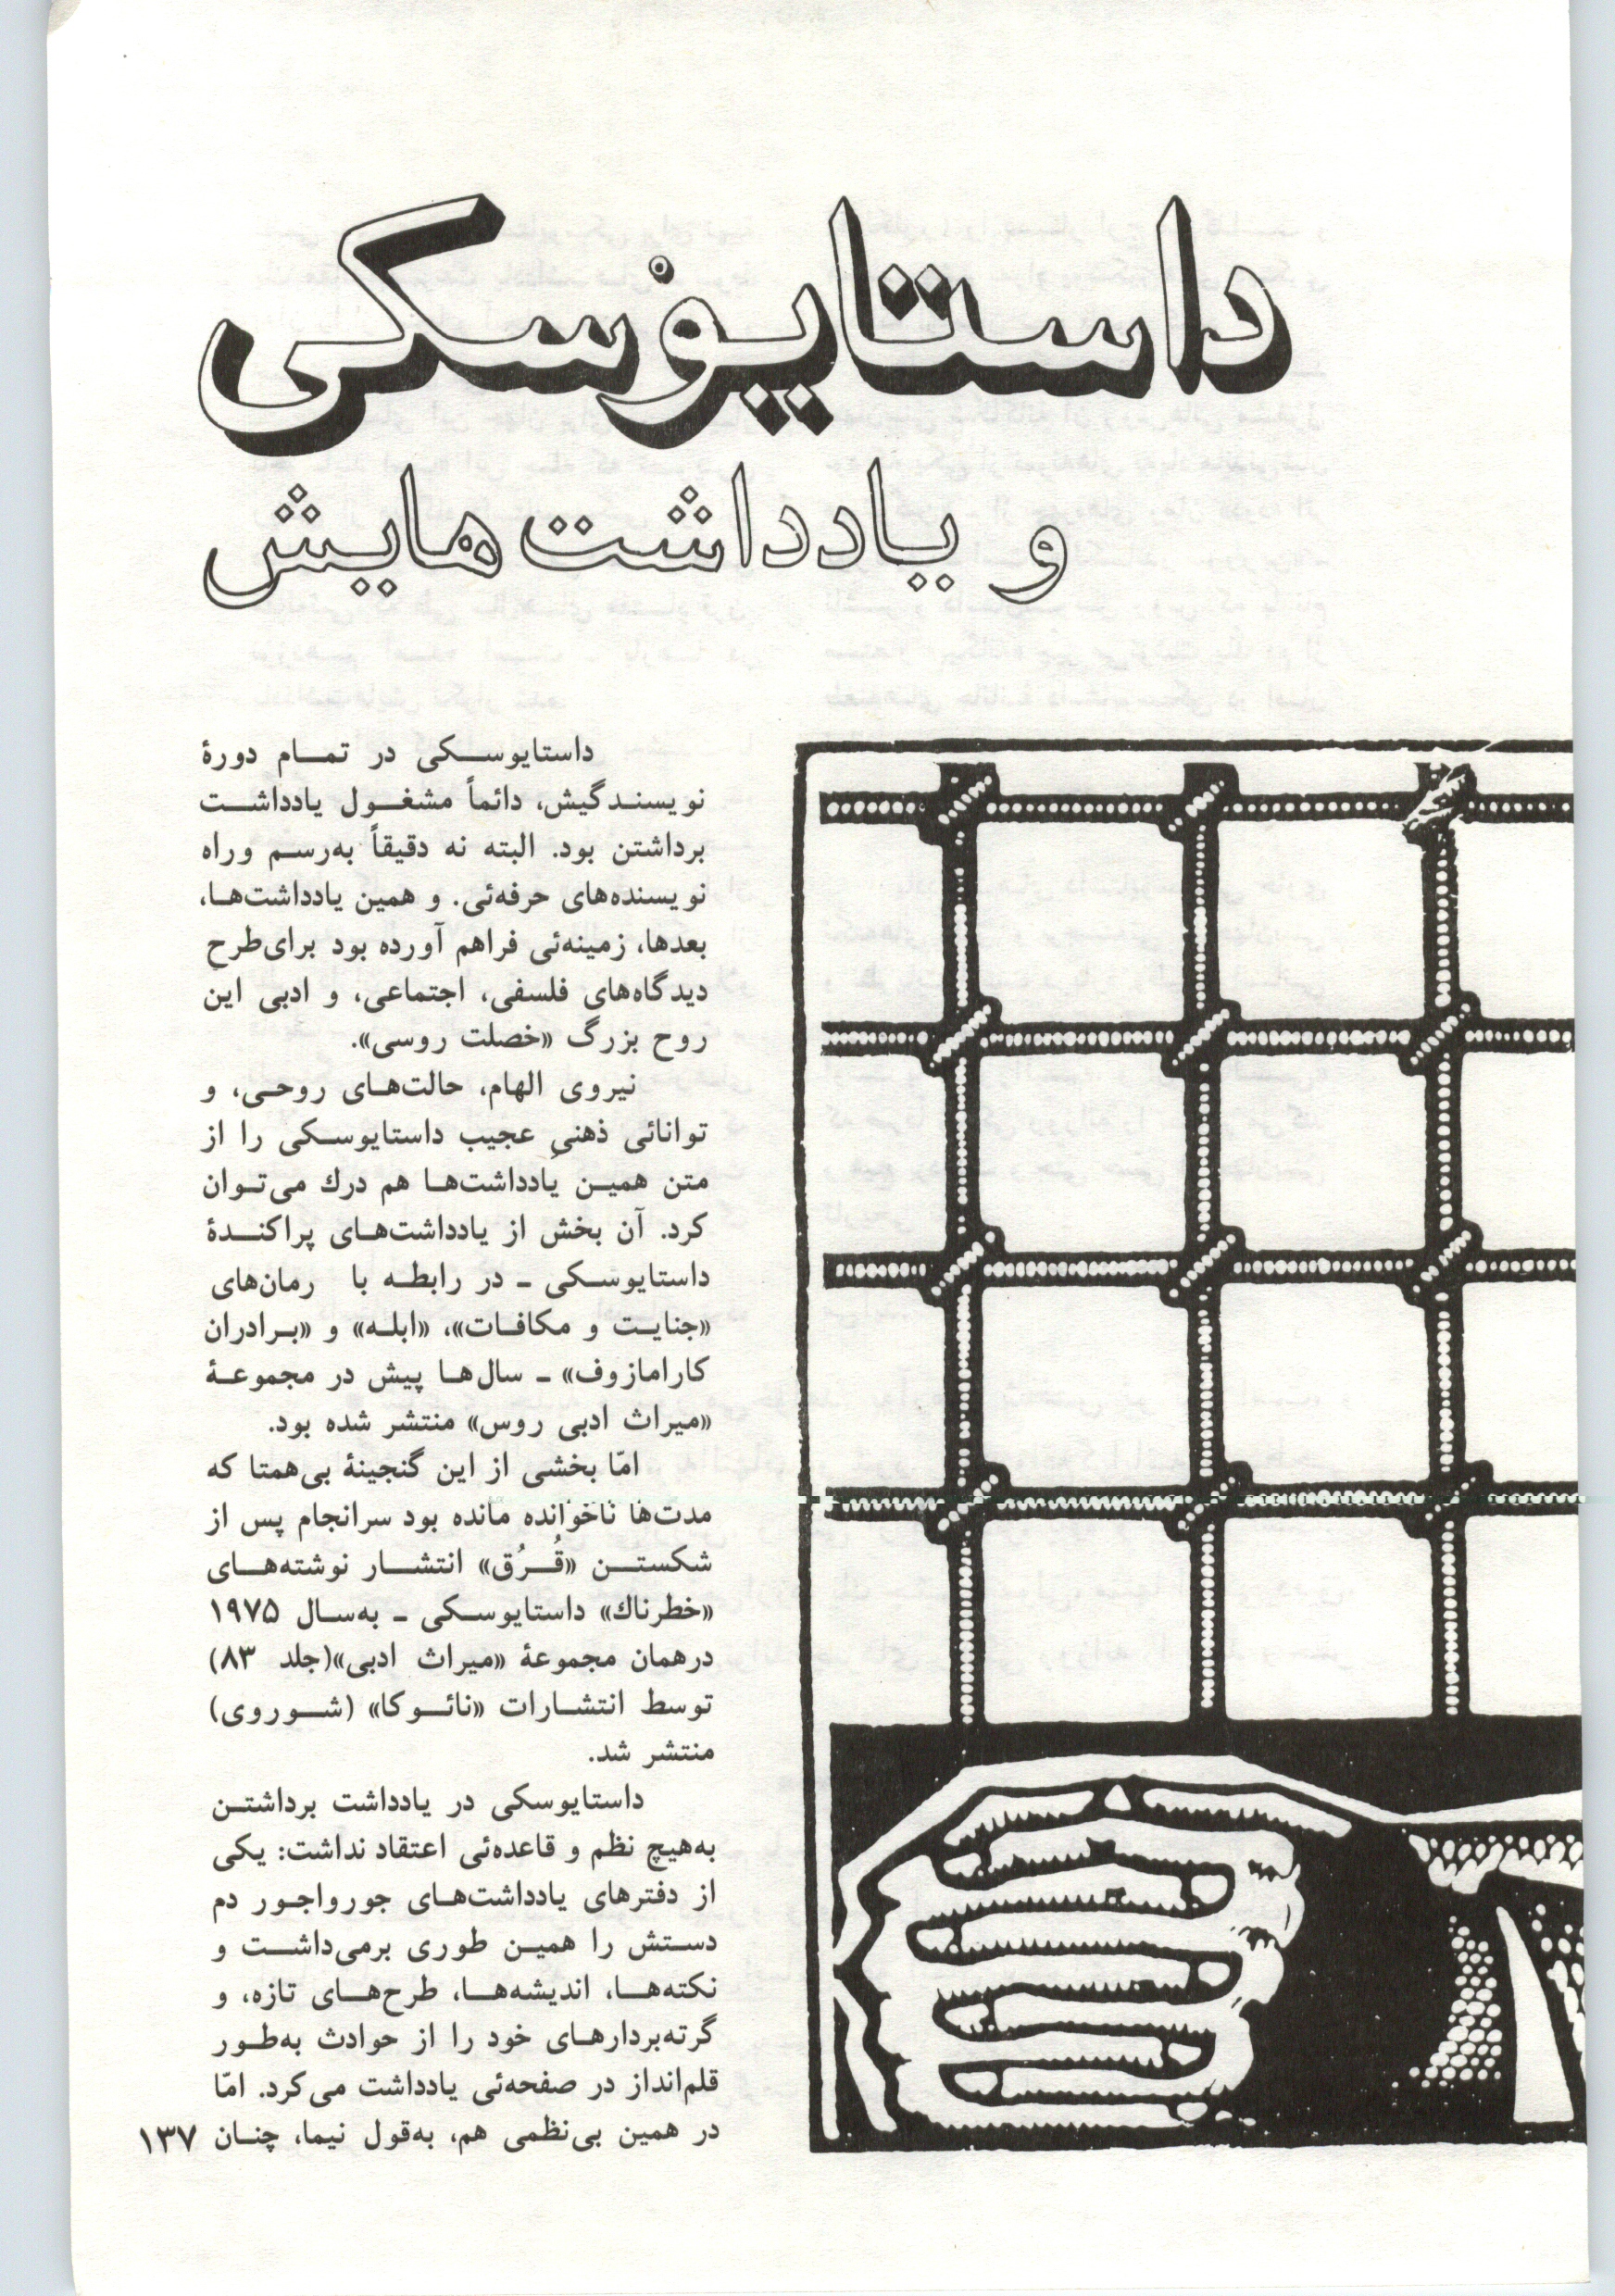 داستایوْسکی
و یادداشت‌هایش
داستایوسکی در تمام دورهٔ
نویسندگیش، دائماً مشغول یادداشت
برداشتن بود. البته نه دقیقاً به‌رسم وراه
نویسنده‌های حرفه‌ئی. و همین یادداشت‌ها،
بعدها، زمینه‌ئی فراهم آورده بود برای‌طرحِ
دیدگاه‌های فلسفی، اجتماعی، و ادبی این
روح بزرگ «خصلت روسی».
نیروی الهام، حالت‌های روحی، و
توانائی ذهنیِ عجیب داستایوسکی را از
متن همین یادداشت‌ها هم درك می‌توان
کرد. آن بخش از یادداشت‌های پراکندهٔ
داستایوسکی ـ در رابطه با رمان‌های
«جنایت و مکافات»، «ابله» و «برادران
کارامازوف» ـ سال‌ها پیش در مجموعهٔ
«میراث ادبی روس» منتشر شده بود.
امّا بخشی از این گنجینهٔ بی‌همتا که
مدت‌ها ناخوانده مانده بود سرانجام پس از
شکستن «قُرُق» انتشار نوشته‌های
«خطرناك» داستایوسکی ـ به‌سال ۱۹۷۵
درهمان مجموعهٔ «میراث ادبی»(جلد ۸۳)
توسط انتشارات «نائوکا» (شوروی)
منتشر شد.
داستایوسکی در یادداشت برداشتن
به‌هیچ نظم و قاعده‌ئی اعتقاد نداشت: یکی
از دفترهای یادداشت‌های جورواجور دم
دستش را همین طوری برمی‌داشت و
نکته‌ها، اندیشه‌ها، طرح‌های تازه، و
گرته‌بردارهای خود را از حوادث به‌طور
قلم‌انداز در صفحه‌ئی یادداشت می‌کرد. امّا
در همین بی‌نظمی هم، به‌قول نیما، چنان
۱۳۷